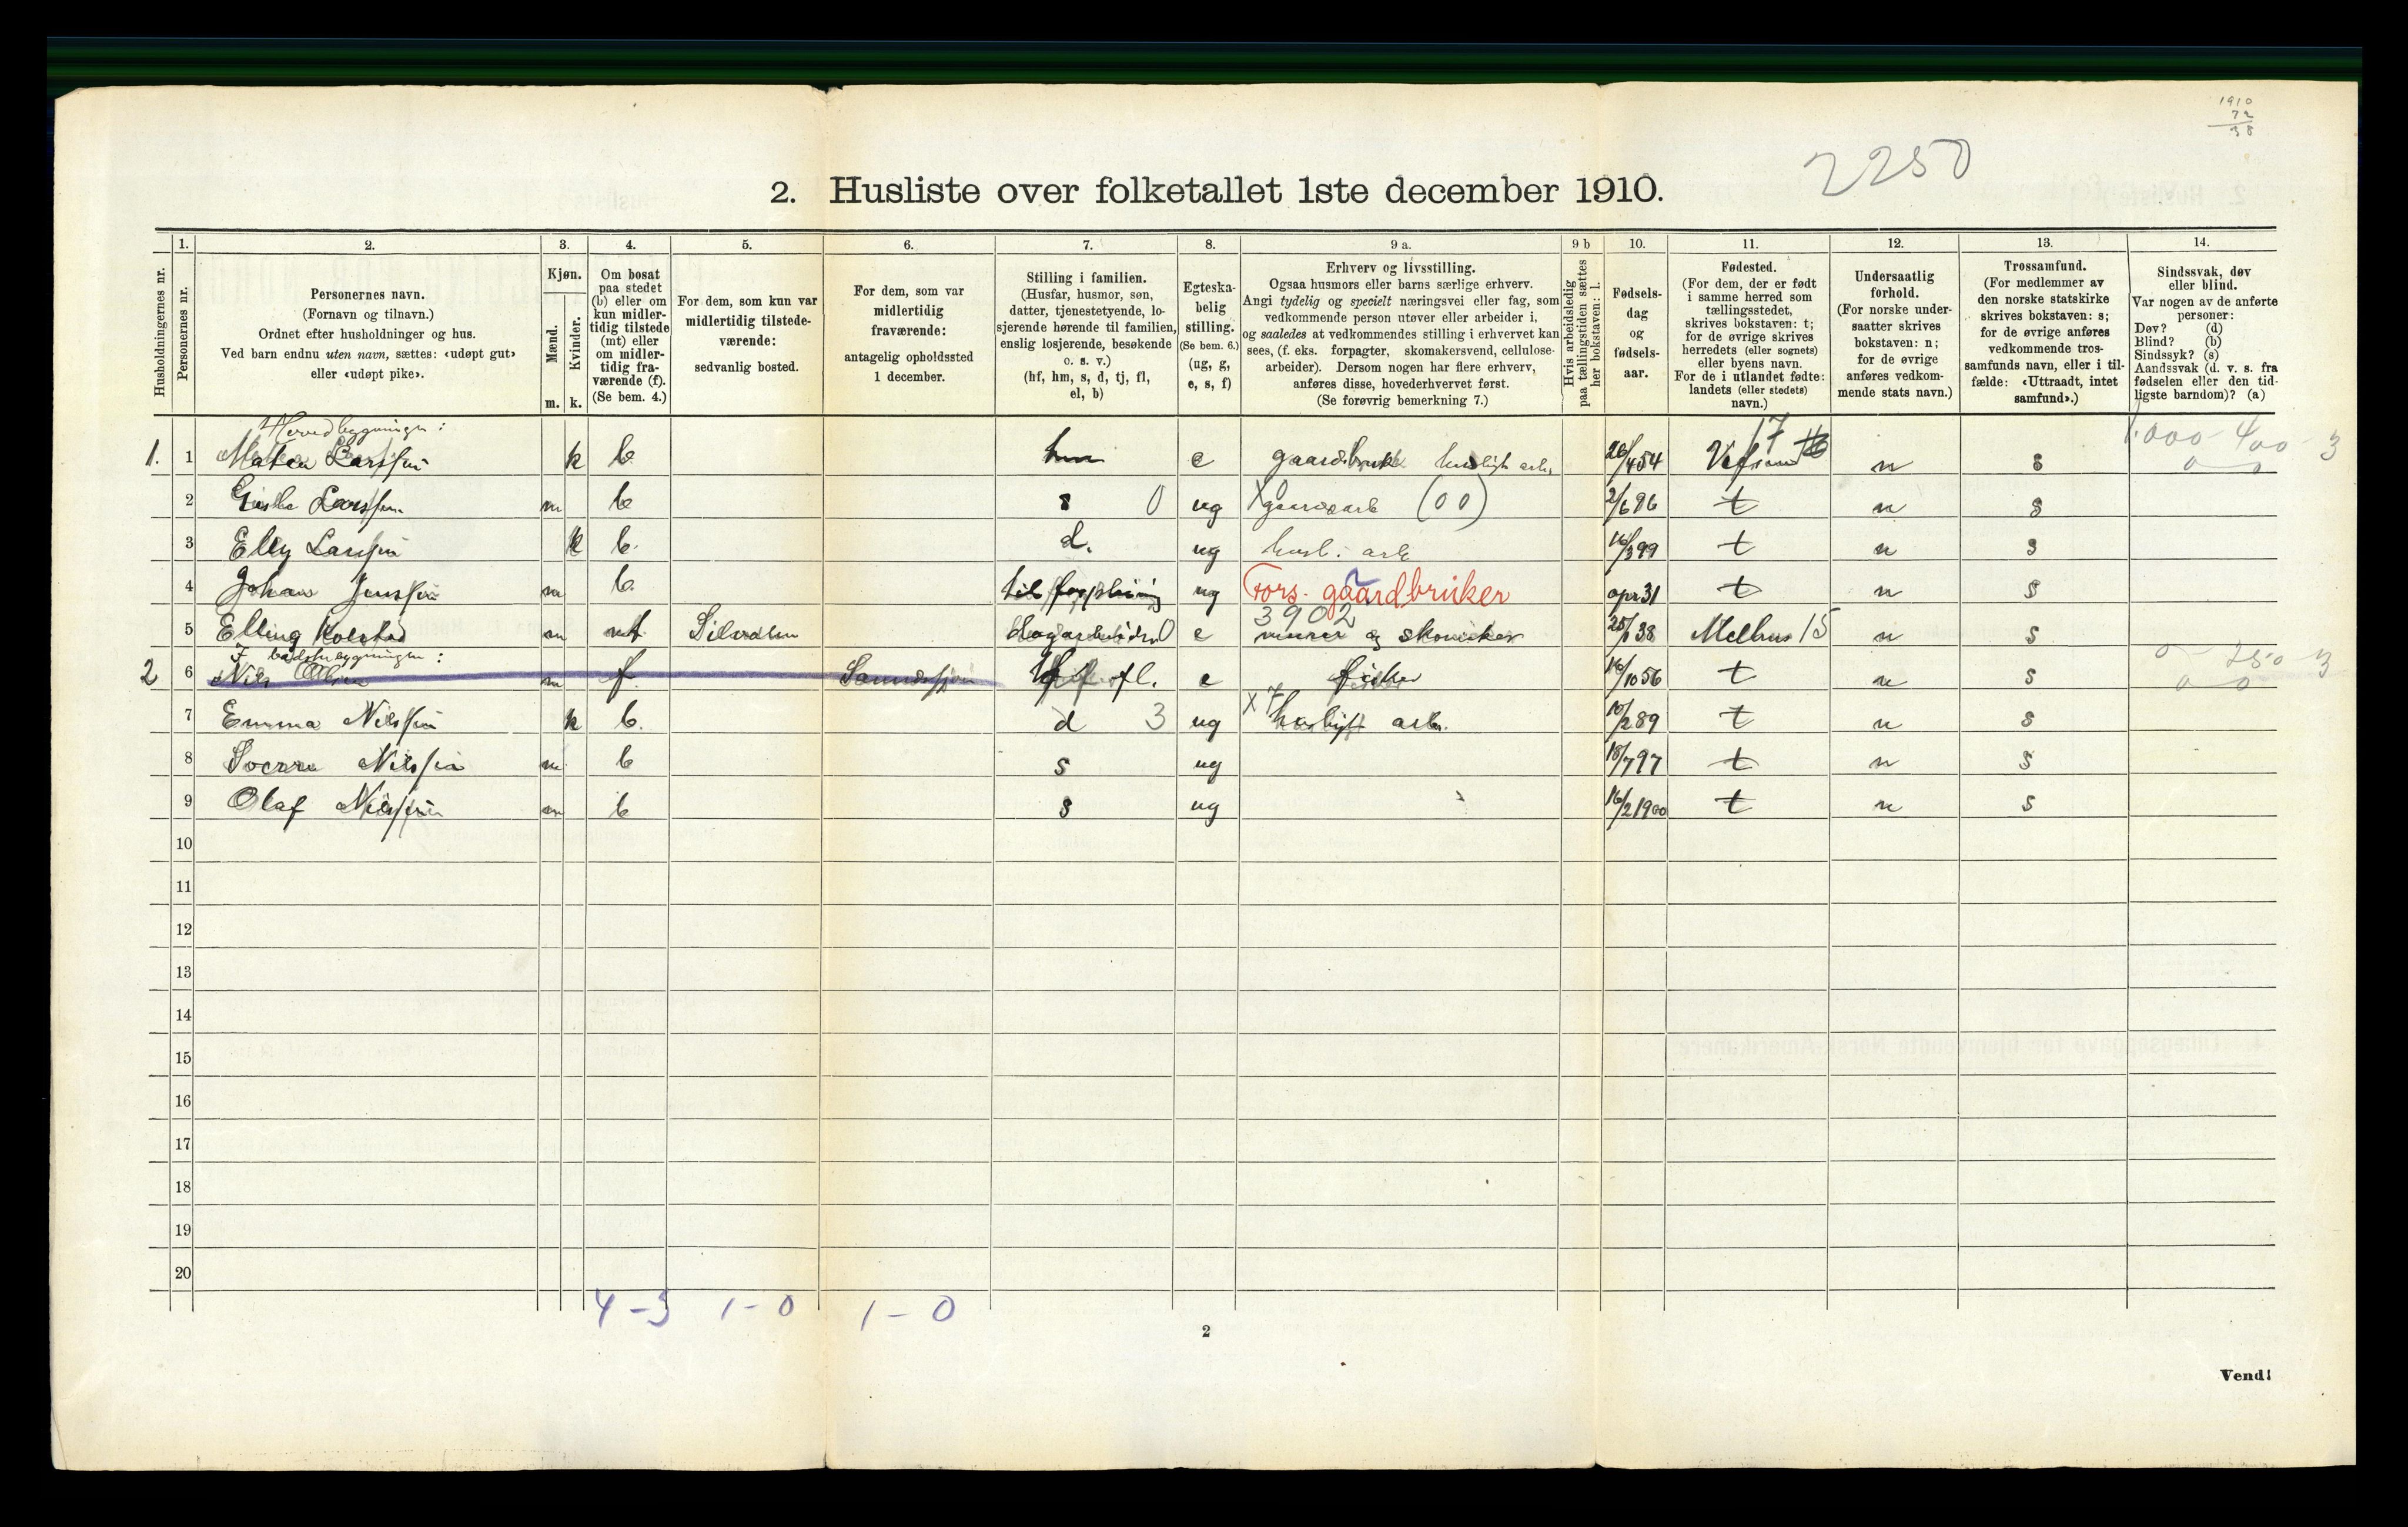 1910
72
38
2250
2. Husliste over folketallet 1ste december 1910.
Husholdningernes nr.
1.
Personernes nr.
2.
Personernes navn.
(Fornavn og tilnavn.)
Ordnet efter husholdninger og hus.
Ved barn endnu uten navn, sættes: «udøpt gut»
eller «udøpt pike».
3.
Kjøn.
Mænd.
Kvinder.
m. k.
4.
Om bosat
paa stedet
(b) eller om
kun midler-
tidig tilstede
(mt) eller
om midler-
tidig fra-
værende (f).
(Se bem. 4.)
5.
For dem, som kun var
midlertidig tilstede-
værende:
sedvanlig bosted.
6.
For dem, som var
midlertidig
fraværende:
antagelig opholdssted
1 december.
7.
Stilling i familien.
(Husfar, husmor, søn,
datter, tjenestetyende, lo-
sjerende hørende til familien,
enslig losjerende, besøkende
o. s. v.)
(hf, hm, s, d, tj, fl,
el, b)
8.
Egteska-
belig
stilling.
(Se bem. 6.)
(ug, g,
e, s, f)
9 a.
Erhverv og livsstilling.
Ogsaa husmors eller barns særlige erhverv.
Angi tydelig og specielt næringsvei eller fag, som
vedkommende person utøver eller arbeider i,
og saaledes at vedkommendes stilling i erhvervet kan
sees, (f. eks. forpagter, skomakersvend, cellulose-
arbeider). Dersom nogen har flere erhverv,
anføres disse, hovederhvervet først.
(Se forøvrig bemerkning 7.)
9 b
Hvis arbeidsledig
paa tællingstiden sættes
her bokstaven: l.
10.
Fødsels-
dag
og
fødsels-
aar.
11.
Fødested.
(For dem, der er født
i samme herred som
tællingsstedet,
skrives bokstaven: t;
for de øvrige skrives
herredets (eller sognets)
eller byens navn.
For de i utlandet fødte:
landets (eller stedets)
navn.)
12.
Undersaatlig
forhold.
(For norske under-
saatter skrives
bokstaven: n;
for de øvrige
anføres vedkom-
mende stats navn.)
13.
Trossamfund.
(For medlemmer av
den norske statskirke
skrives bokstaven: s;
for de øvrige anføres
vedkommende tros-
samfunds navn, eller i til-
fælde: «Uttraadt, intet
samfund».)
14.
Sindssvak, døv
eller blind.
Var nogen av de anførte
personer:
Døv? (d)
Blind? (b)
Sindssyk? (s)
Aandssvak (d. v. s. fra
fødselen eller den tid-
ligste barndom)? (a)
Hovedbygningen:
1. 1 Larssen k b. hm e gaardbruk husligt arb. 26/4 54 17 n s 1.000 - 400 - 3
0 0
2 Larssen m b s 0 ug x gaardsarb (00) 2/6 96 t n s
3 Elly Larssen k b. d. ug husl. arb 16/3 99 t n s
4 Johan Jenssen m b. til forpleining ug Fors. gaardbruker opr 31 t n s
3902
5 Elling Kolstad m mt e murer og skomaker 25/1 38 Melhus 15 n s
I :
2 6 Nils Olsen m f. fl. e fisker 16/10 56 t n s 0 - 250 - 3
0 0
7 Emma Nilssen k b. d 3 ug x 7 husligt arb. 10/2 89 t n s
8 Nilssen m b s ug 18/7 97 t n s
9 Olaf Nilssen m b s ug 16/2 1900 t n s
10
11
12
13
14
15
16
17
18
19
20
4 - 3 1 - 0 1 - 0
2
Vend!